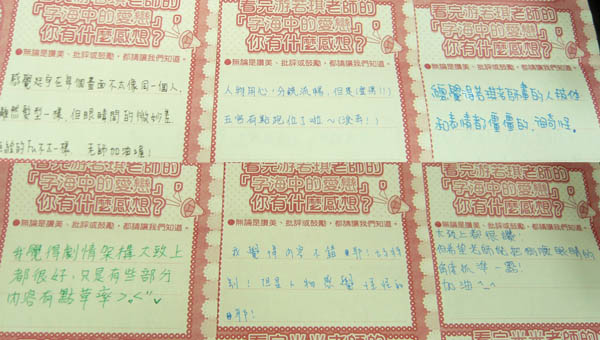 看完游若琪老師的
「字海中的愛戀」
你有什麼感想？
●無論是讚美、批評或鼓勵，都請讓我們知道。
感覺延宇在每個畫面不太像同一個人，
雖然髮型一樣，但眼睛間的微妙差
不一樣 老師加油喔！
看完游若琪老師的
「字海中的愛戀」
你有什麼感想？
●無論是讚美、批評或鼓勵，都請讓我們知道。
人物用心，分鏡流暢，但是
五官有點跑位了啦～
看完游若琪老師的
「字海中的愛戀」
你有什麼感想？
●無論是讚美、批評或鼓勵，都請讓我們知道。
總覺得若琪老師畫的人肢体
和表情都僵僵的，油奇怪。
看完游若琪老師的
「字海中的愛戀」
你有什麼感想？
●無論是讚美、批評或鼓勵，都請讓我們知道。
我覺得劇情架構大致上
都很好，只是有些部分
內容有點草率
看完游若琪老師的
「字海中的愛戀」
你有什麼感想？
●無論是讚美、批評或鼓勵，都請讓我們知道。
我覺得內容不錯耶！
別！但是人物感覺怪怪的
耶！
看完游若琪老師的
「字海中的愛戀」
你有什麼感想？
●無論是讚美、批評或鼓勵，都請讓我們知道。
大致上都很讚
但希望老師能把側臉眼睛的
抓準一點！
加油^_^